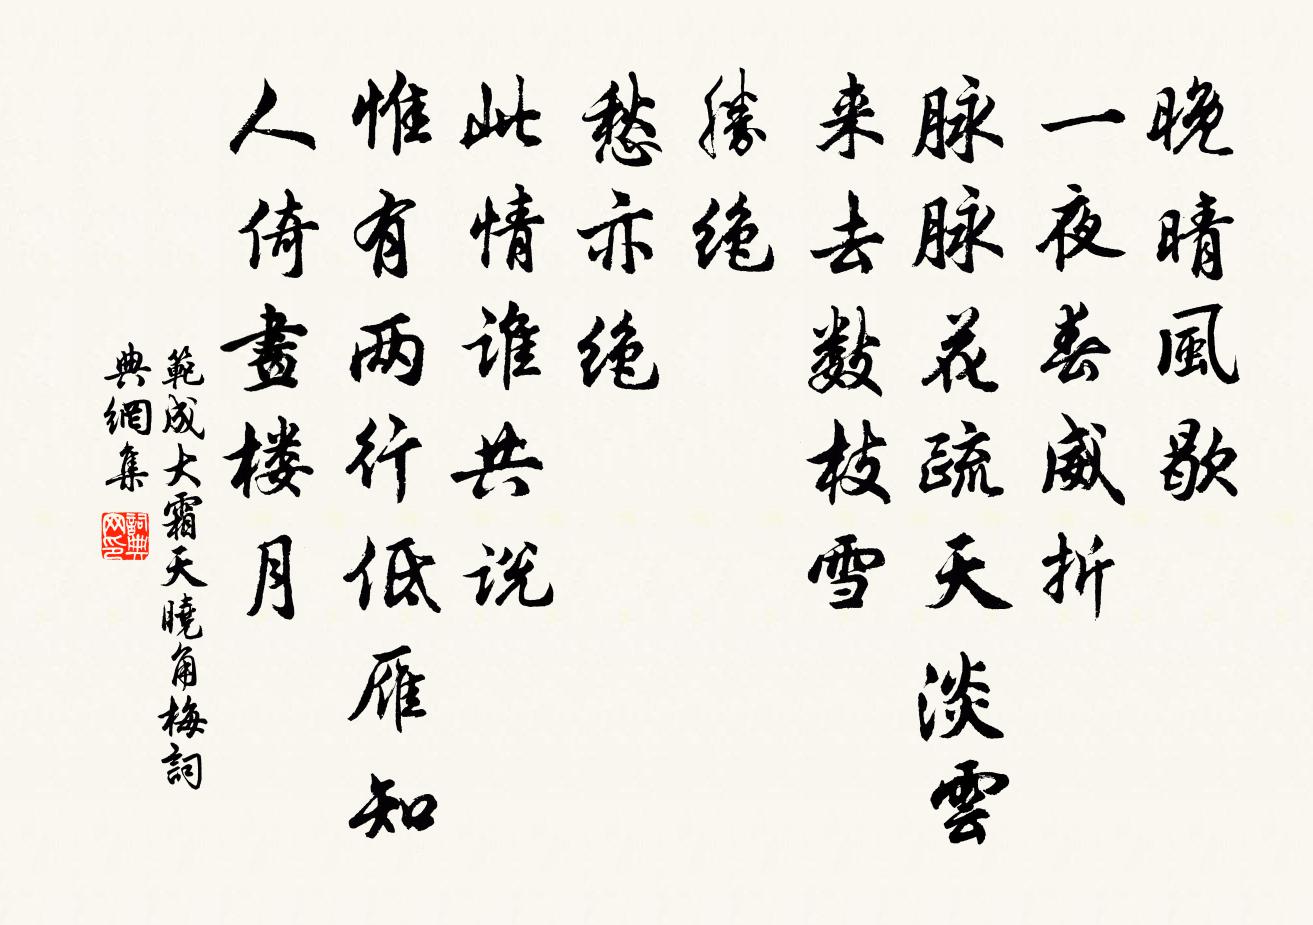 晚晴風歇
一夜春威折
脉脉花疏天淡雲
来去数枝雪
勝绝
愁亦绝
此情谁共说
惟有两行低雁知
人倚畫楼月
範成大霜天曉角梅詞
典網集
詞典网印